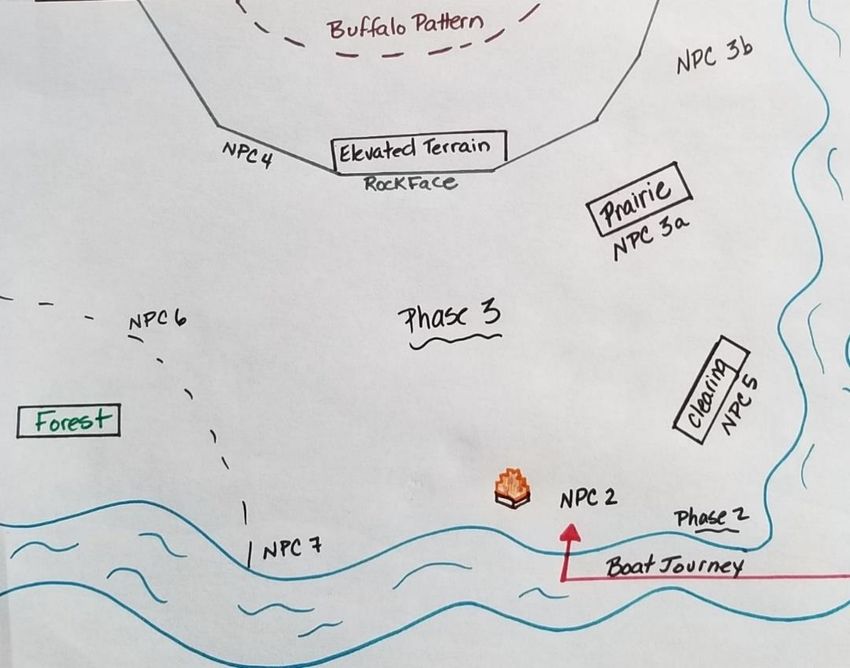 Buffalo Pattern
NPC 3b
NPC 4
Elevated Terrain
RockFace
Prairie
NPC 3a
NPC 6
Phase 3
Clearing
NPC 5
Forest
NPC 2
Phase 2
NPC 7
Boat Journey